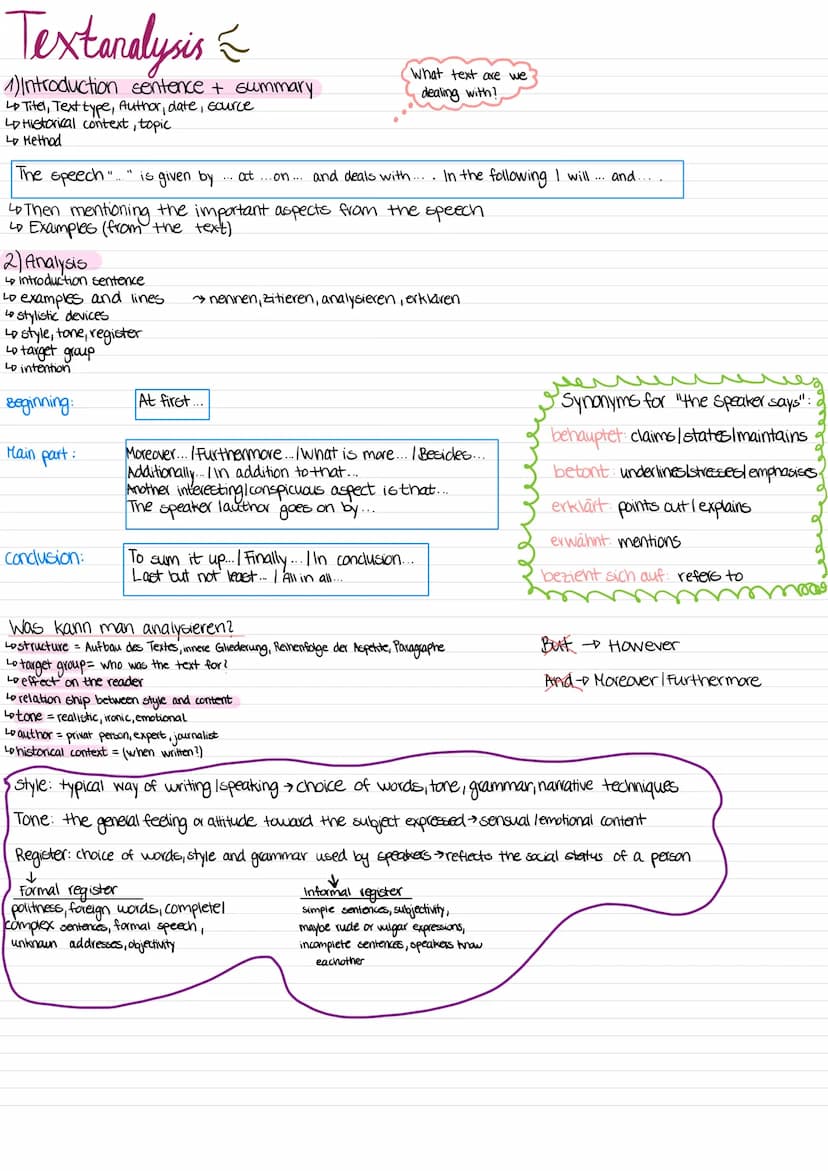 Textanalysis
1) Introduction sentence + summary
↳ Titel, Text type, Author, date, source
↳ Historical context, topic
↳ Method
What text are we
dealing with?
The speech "..." is given by ... at ... on ... and deals with ... . In the following I will ... and ... .
↳ Then mentioning the important aspects from the speech
↳ Examples (from the text)
2) Analysis
↳ Introduction sentence
↳ examples and lines → nennen, zitieren, analysieren, erklären
↳ stylistic devices
↳ style, tone, register
↳ target group
↳ intention
Beginning:
At first...
Main part:
Moreover... / Furthermore... / What is more... / Besides...
Additionally... / In addition to that...
Another interesting / conspicuous aspect is that...
The speaker / author goes on by...
Conclusion:
To sum it up... / Finally ... / In conclusion...
Last but not least... / All in all...
Synonyms for "the speaker says":
behauptet: claims / states / maintains
betont: underlines / stresses / emphasises
erklärt: points out / explains
erwähnt: mentions
bezieht sich auf: refers to
Was kann man analysieren?
↳ structure = Aufbau des Textes, innere Gliederung, Reihenfolge der Aspekte, Paragraphe
↳ target group = who was the text for?
↳ effect on the reader
↳ relation ship between style and content
↳ tone = realistic, ironic, emotional
↳ author = privat person, expert, journalist
↳ historical context = (when written?)
But → However
And → Moreover / Furthermore
Style: typical way of writing / speaking → choice of words, tone, grammar, narrative techniques
Tone: the general feeling or attitude toward the subject expressed → sensual / emotional content
Register: choice of words, style and grammar used by speakers → reflects the social status of a person
↓
Formal register
politness, foreign words, complete /
complex sentences, formal speech,
unknown addresses, objectivity
↓
Informal register
simple sentences, subjectivity,
maybe rude or vulgar expressions,
incomplete sentences, speakers know
eachother